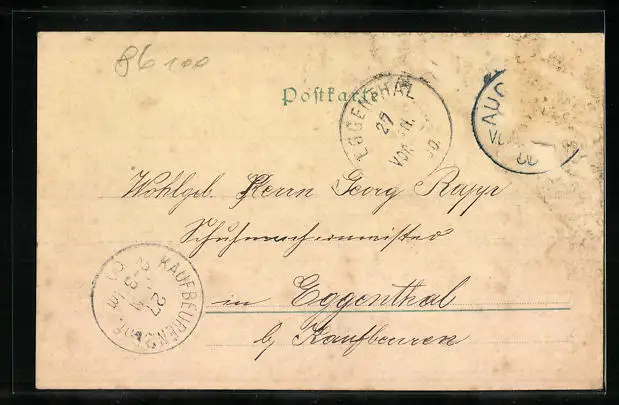 86 100
Postkarte
EGGENTHAL
27
VOR
AUG
Wohlgeb. Herrn Georg Rapp
Schuhmachermeister
in Eggenthal
b/ Kaufbeuren
KAUFBEUREN
27